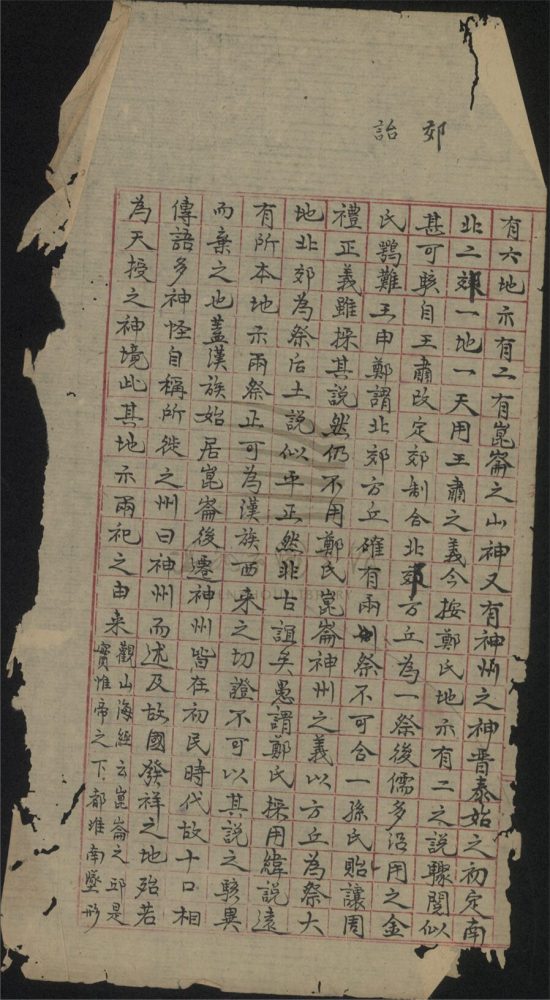 郊詒
有六地示有二有崑崙之山神又有神州之神晋泰始之初定南
北二郊一地一天用王肅之義今按鄭氏地示有二之說驟閱似
甚可駭自王肅改定郊制合北郊方丘為一祭後儒多沿用之金
氏鶚難王申鄭謂北郊方丘確有兩祭不可合一孫氏貽讓周
禮正義雖採其說然仍不用鄭氏崑崙神州之義以方丘為祭大
地北郊為祭后土說似平正然非古誼矣愚謂鄭氏採用緯說遠
有所本地示兩祭正可為漢族西来之切證不可以其說之駭異
而棄之也蓋漢族始居崑崙後遷神州皆在初民時代故十口相
傳語多神怪自稱所徙之州曰神州而述及故國發祥之地殆若
為天授之神境此其地示兩祀之由来觀山海經云崑崙之邱是
實惟帝之下都淮南墬形